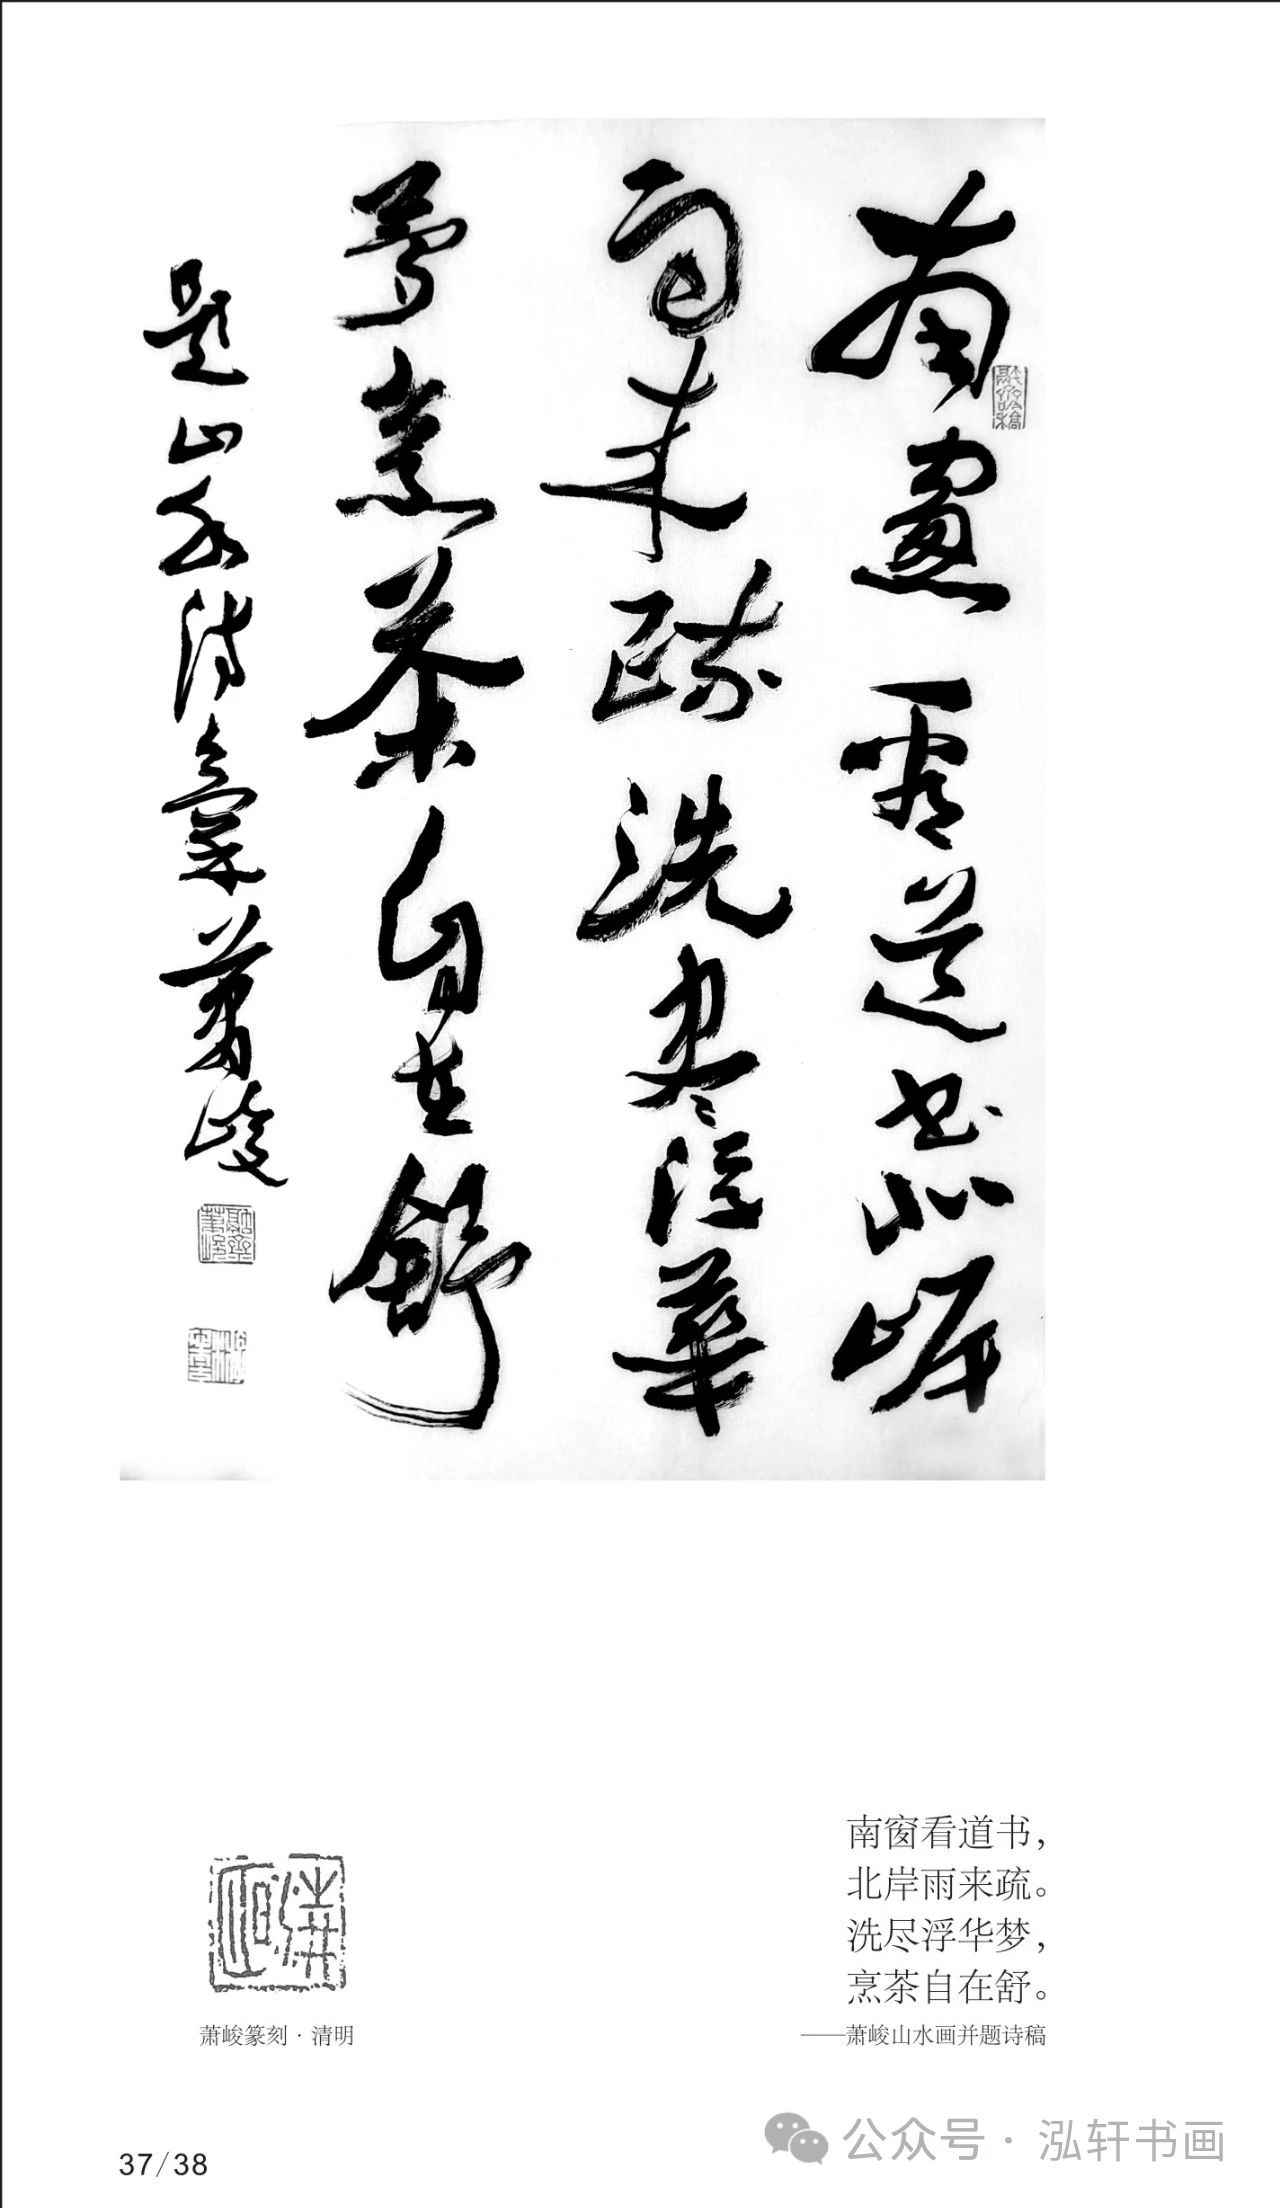 南窗看道书北岸
雨来疏洗尽浮華
夢烹茶自在舒
题山水诗稾萧峻
南窗看道书，
北岸雨来疏。
洗尽浮华梦，
烹茶自在舒。
——萧峻山水画并题诗稿
萧峻篆刻·清明
37/38
公众号·泓轩书画